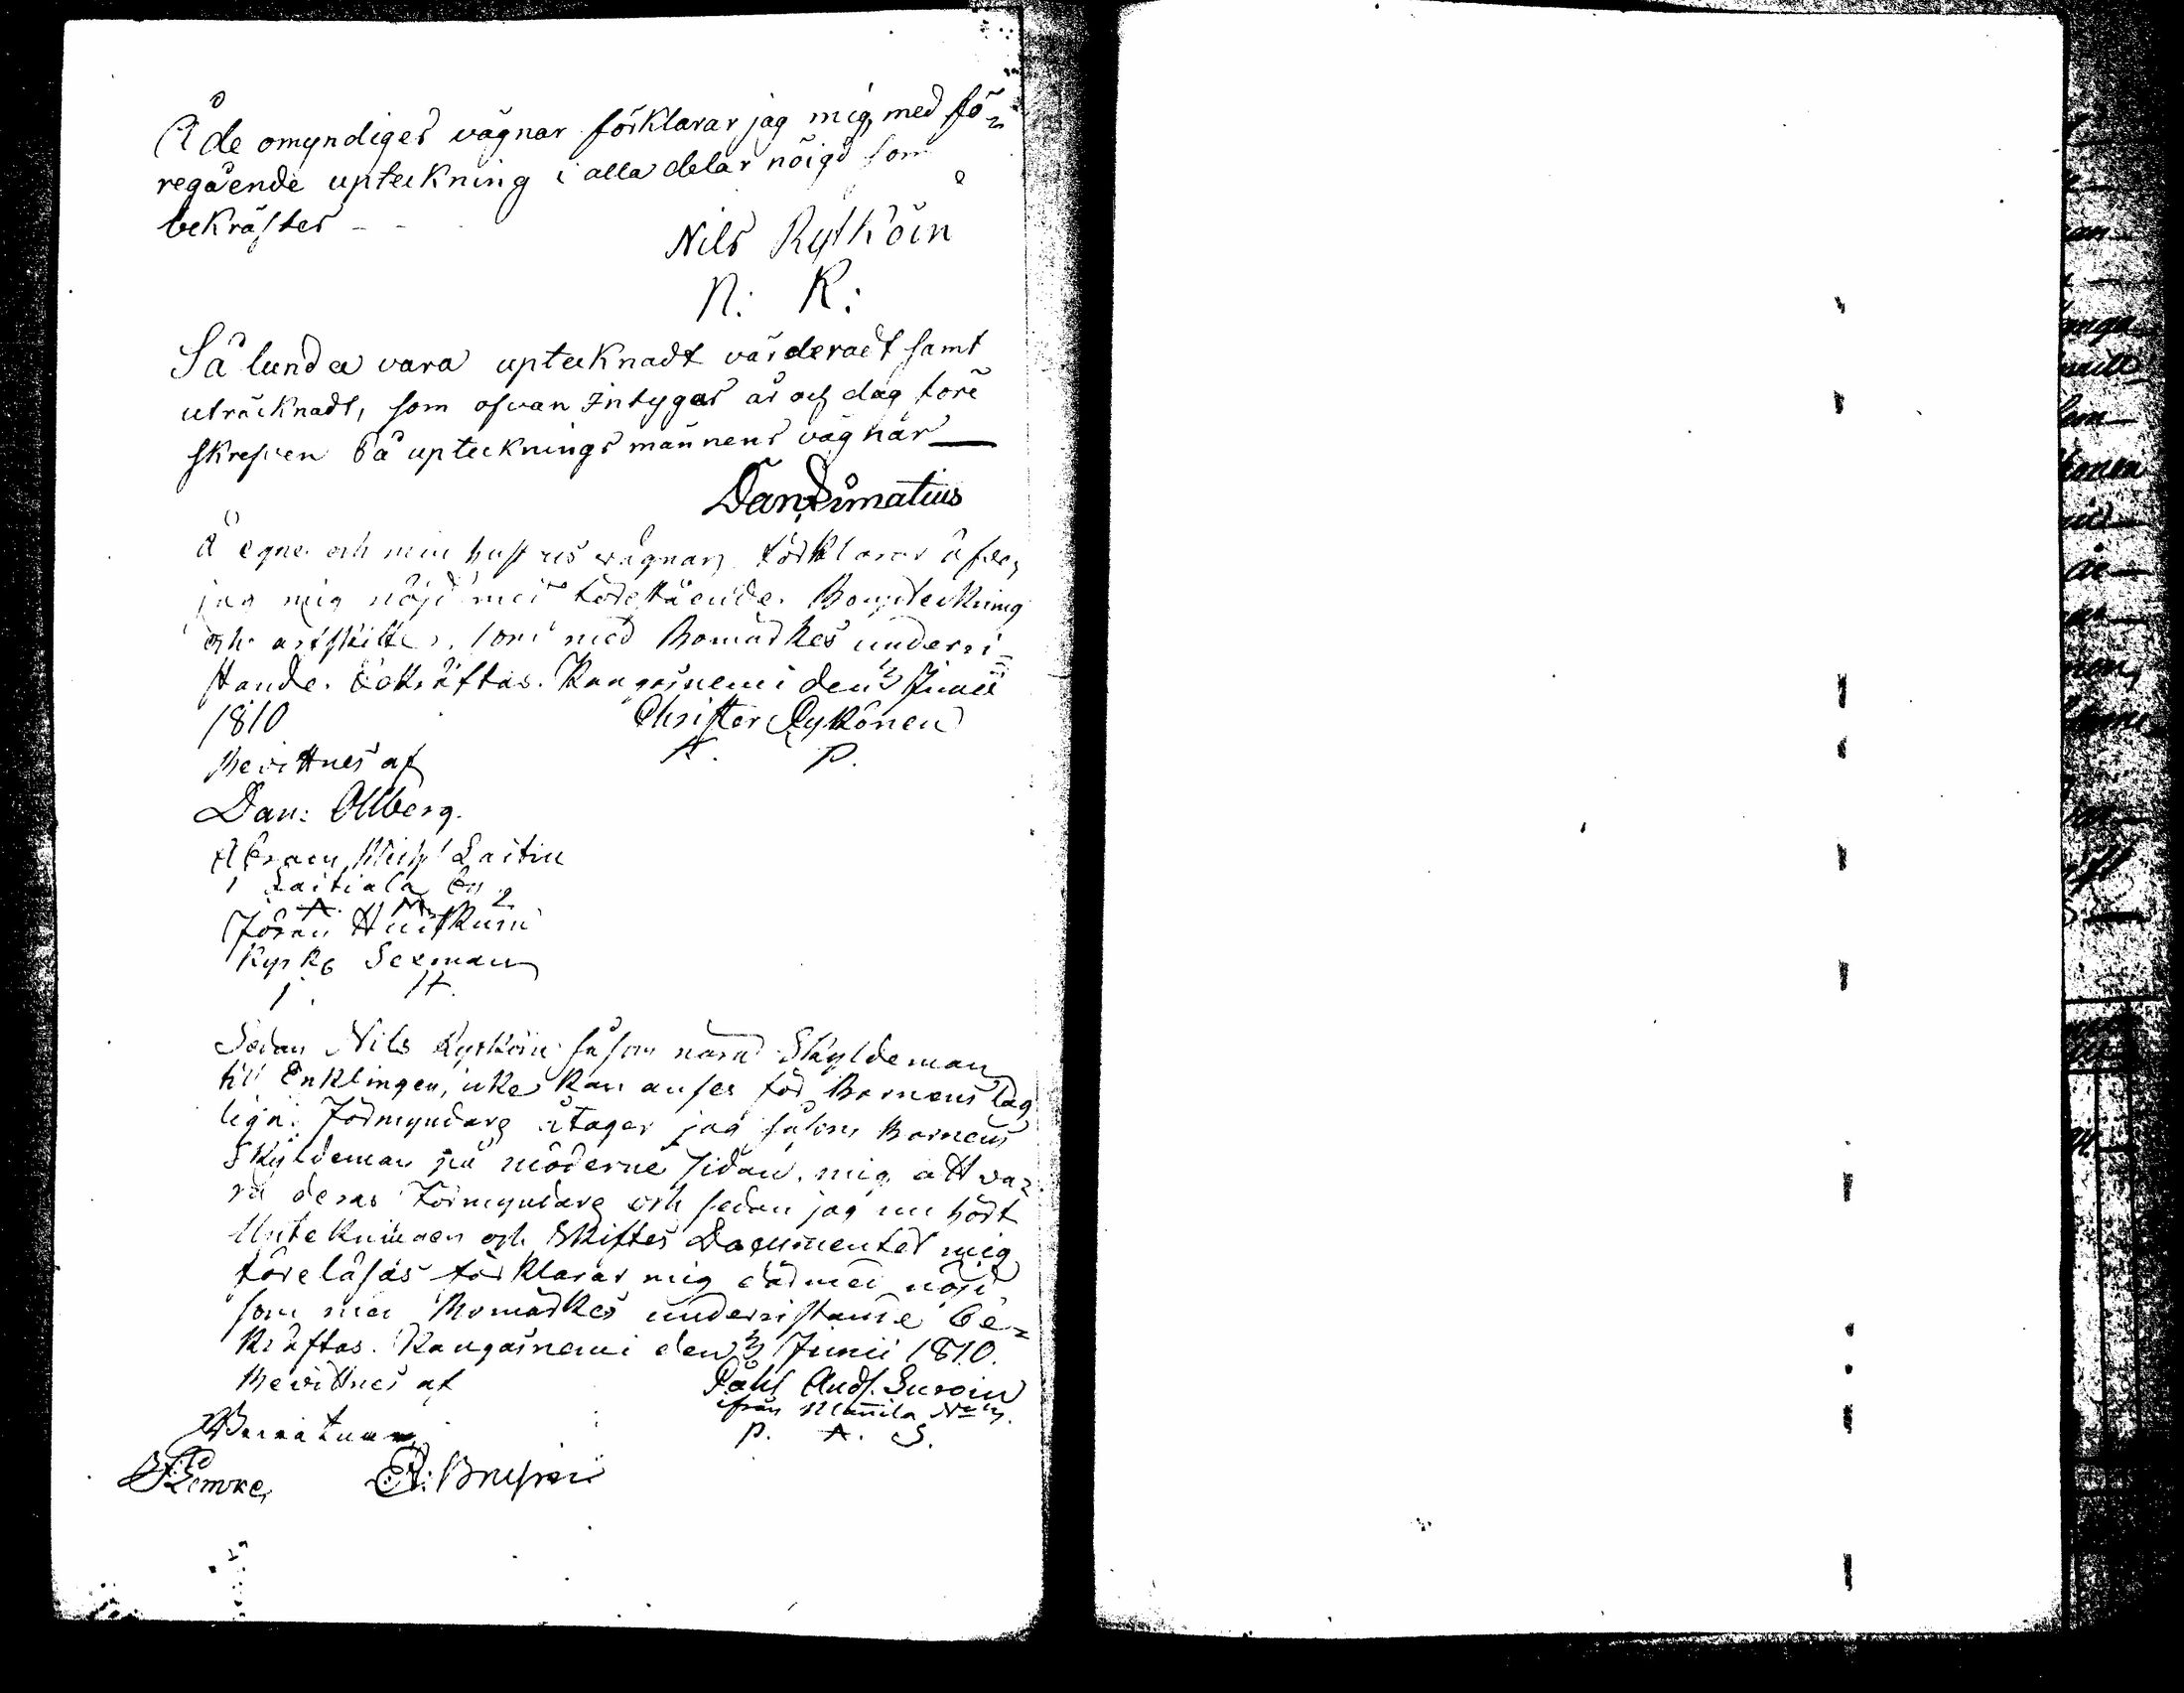 Å de omyndiges vägnar förklarar jag mig, med fö=
regående upteckning i alla delar nöigd som
bekräftes - -
Nils Rytköin
N: R:
Så lunda vara uptecknadt värderadt samt
uträcknadt, som ofvan Intygas år och dag fore
skrefven På uptecknings männens vägnar
Dan Simatius
Å egne och min hustrus vägnar förklarar äfven
jag mig nöjd med förestående Bouptekning
och arfskifte, som med Bomärkes underri=
stande. bekräftas. Kangasnemi den 3 Junii
1810
Christer Rytkönen
Bevittnes af
Dan: Ollberg.
Abram Mich Laitin
i Laitiala by 2
A. M.
Jöran Hutkuin
Kyrko Sexman
J. H.
Sedan Nils Rytköin såsom nära Skyldeman
till Enklingen, icke kan anses för Barnens lag
liga Förmyndare åtager jag såsom Barnens
Skyldeman på möderne sidan, mig att va=
ra deras Förmyndare och sedan jag nu hört
Uptekningen och Skiftes Documentet mig
föreläsas förklarar mig därmed nöjd
som med Bomärkes underristande be=
kräftas. Kangasnemi den 3 Junii 1810.
Bevittnes af
Påhl Ands. Suroin
från Mannila No 3.
P. A. S.